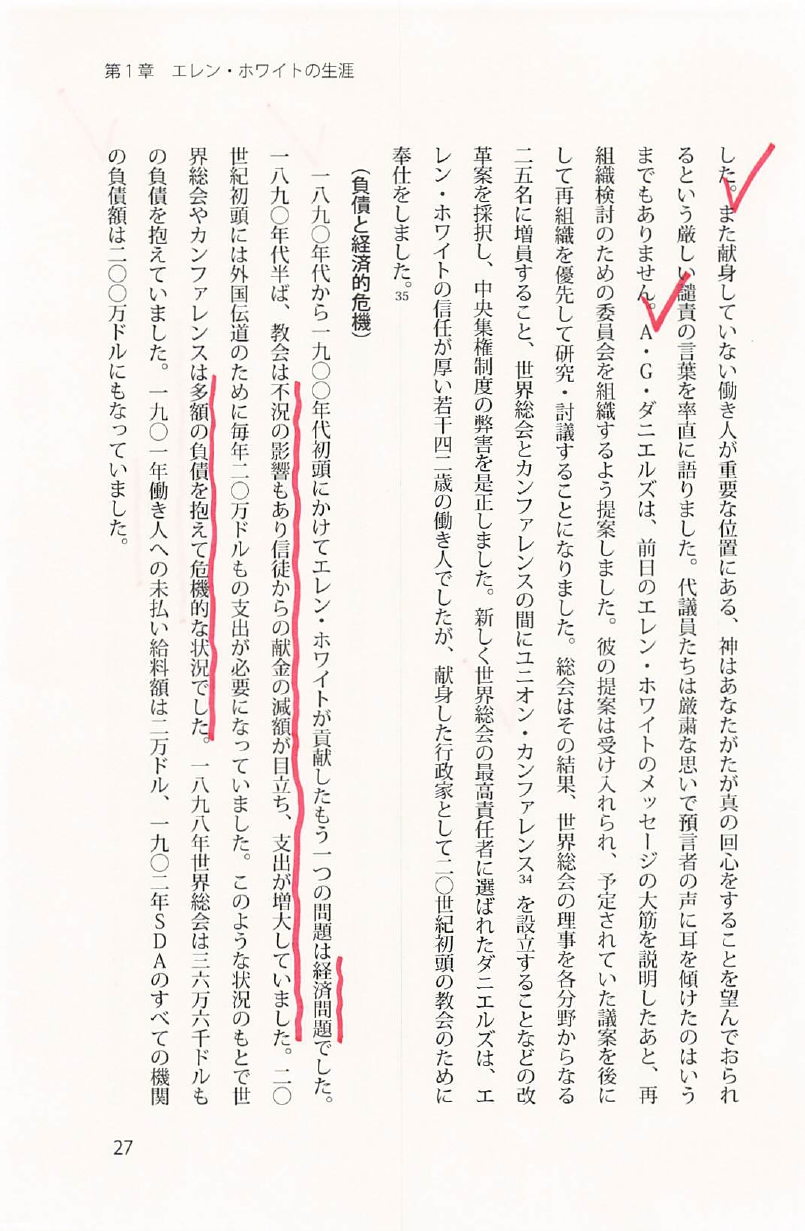 第1章　エレン・ホワイトの生涯
した。また献身していない働き人が重要な位置にある、神はあなたがたが真の回心をすることを望んでおられ
るという厳しい譴責の言葉を率直に語りました。代議員たちは厳粛な思いで預言者の声に耳を傾けたのはいう
までもありません。A・G・ダニエルズは、前日のエレン・ホワイトのメッセージの大筋を説明したあと、再
組織検討のための委員会を組織するよう提案しました。彼の提案は受け入れられ、予定されていた議案を後に
して再組織を優先して研究・討議することになりました。総会はその結果、世界総会の理事を各分野からなる
二五名に増員すること、世界総会とカンファレンスの間にユニオン・カンファレンス34を設立することなどの改
革案を採択し、中央集権制度の弊害を是正しました。新しく世界総会の最高責任者に選ばれたダニエルズは、エ
レン・ホワイトの信任が厚い若干四二歳の働き人でしたが、献身した行政家として二〇世紀初頭の教会のために
奉仕をしました。35
（負債と経済的危機）
一八九〇年代から一九〇〇年代初頭にかけてエレン・ホワイトが貢献したもう一つの問題は経済問題でした。
一八九〇年代半ば、教会は不況の影響もあり信徒からの献金の減額が目立ち、支出が増大していました。二〇
世紀初頭には外国伝道のために毎年二〇万ドルもの支出が必要になっていました。このような状況のもとで世
界総会やカンファレンスは多額の負債を抱えて危機的な状況でした。一八九八年世界総会は三六万六千ドルも
の負債を抱えていました。一九〇一年働き人への未払い給料額は二万ドル、一九〇二年SDAのすべての機関
の負債額は二〇〇万ドルにもなっていました。
27